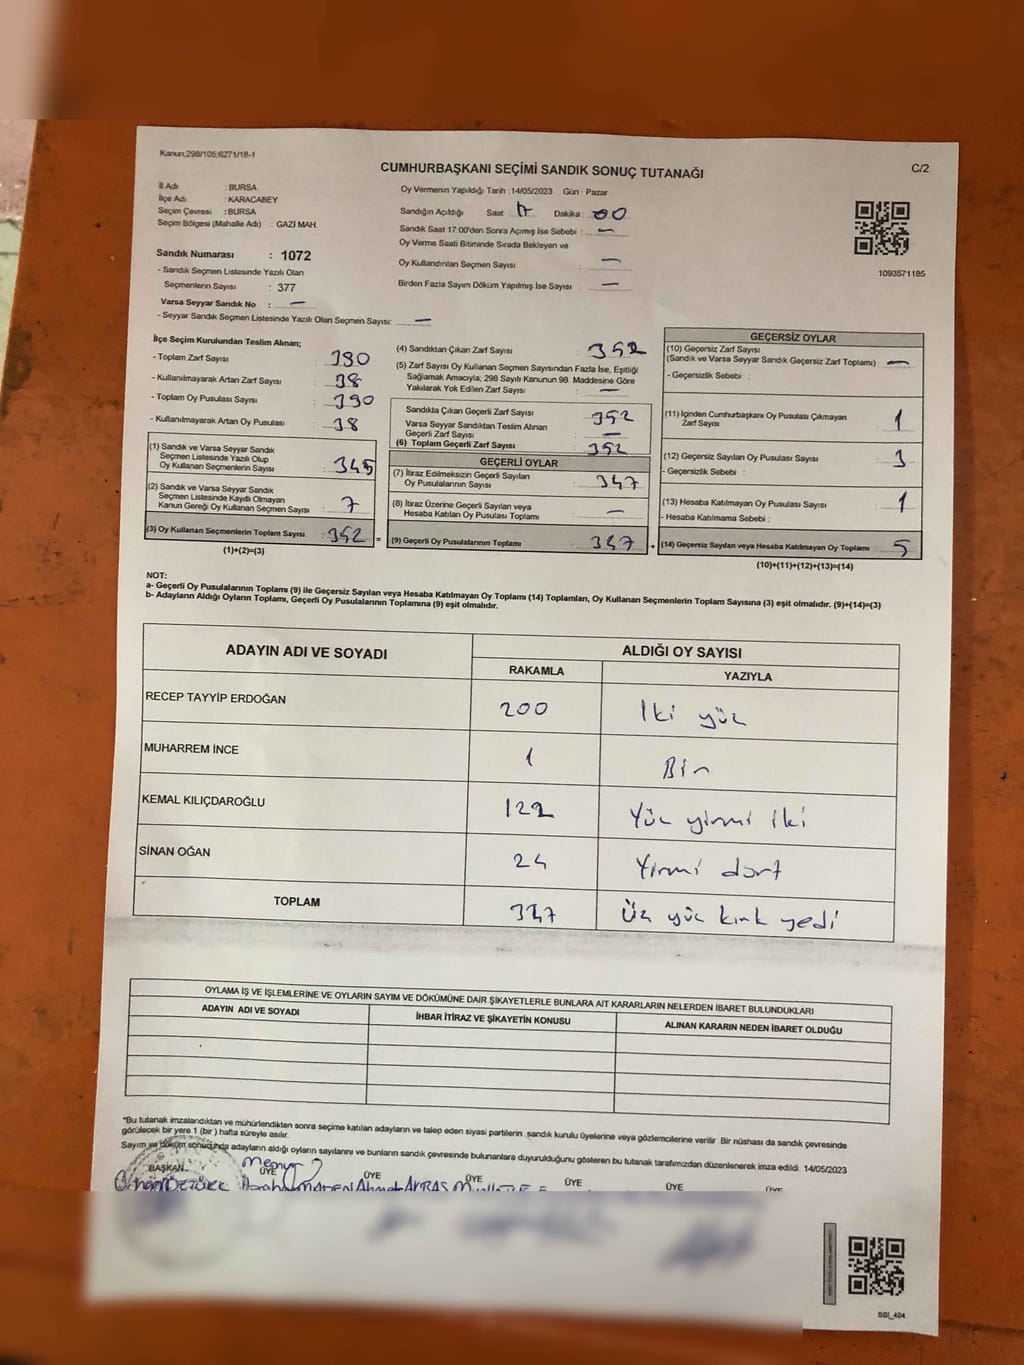 Kanun:298/105;6271/18-1
C/2
CUMHURBAŞKANI SEÇİMİ SANDIK SONUÇ TUTANAĞI
İl Adı : BURSA
İlçe Adı : KARACABEY
Seçim Çevresi : BURSA
Seçim Bölgesi (Mahalle Adı) : GAZİ MAH.
Oy Vermenin Yapıldığı Tarih :14/05/2023 Gün : Pazar
Sandığın Açıldığı Saat : 17 Dakika : 00
Sandık Saat 17:00'den Sonra Açımış İse Sebebi : —
Oy Verme Saati Bitiminde Sırada Bekleyen ve
Oy Kullandırılan Seçmen Sayısı : —
Birden Fazla Sayım Döküm Yapılmış İse Sayısı : —
1093571185
Sandık Numarası : 1072
- Sandık Seçmen Listesinde Yazılı Olan
Seçmenlerin Sayısı : 377
Varsa Seyyar Sandık No : —
- Seyyar Sandık Seçmen Listesinde Yazılı Olan Seçmen Sayısı: —
İlçe Seçim Kurulundan Teslim Alınan;
- Toplam Zarf Sayısı : 390
- Kullanılmayarak Artan Zarf Sayısı : 38
- Toplam Oy Pusulası Sayısı : 390
- Kullanılmayarak Artan Oy Pusulası : 38
(1) Sandık ve Varsa Seyyar Sandık
Seçmen Listesinde Yazılı Olup
Oy Kullanan Seçmenlerin Sayısı : 345
(2) Sandık ve Varsa Seyyar Sandık
Seçmen Listesinde Kayıtlı Olmayan
Kanun Gereği Oy Kullanan Seçmen Sayısı : 7
(3) Oy Kullanan Seçmenlerin Toplam Sayısı : 352
(1)+(2)=(3)
(4) Sandıktan Çıkan Zarf Sayısı : 352
(5) Zarf Sayısı Oy Kullanan Seçmen Sayısından Fazla İse, Eşitliği
Sağlamak Amacıyla; 298 Sayılı Kanunun 98. Maddesine Göre
Yakılarak Yok Edilen Zarf Sayısı : —
Sandıkta Çıkan Geçerli Zarf Sayısı : 352
Varsa Seyyar Sandıktan Teslim Alınan
Geçerli Zarf Sayısı : —
(6) Toplam Geçerli Zarf Sayısı : 352
GEÇERLİ OYLAR
(7) İtiraz Edilmeksizin Geçerli Sayılan
Oy Pusulalarının Sayısı : 347
(8) İtiraz Üzerine Geçerli Sayılan veya
Hesaba Katılan Oy Pusulası Toplamı : —
= (9) Geçerli Oy Pusulalarının Toplamı : 347
GEÇERSİZ OYLAR
(10) Geçersiz Zarf Sayısı
(Sandık ve Varsa Seyyar Sandık Geçersiz Zarf Toplamı) : —
- Geçersizlik Sebebi :
(11) İçinden Cumhurbaşkanı Oy Pusulası Çıkmayan
Zarf Sayısı : 1
(12) Geçersiz Sayılan Oy Pusulası Sayısı : 3
- Geçersizlik Sebebi :
(13) Hesaba Katılmayan Oy Pusulası Sayısı : 1
- Hesaba Katılmama Sebebi :
+ (14) Geçersiz Sayılan veya Hesaba Katılmayan Oy Toplamı : 5
(10)+(11)+(12)+(13)=(14)
NOT:
a- Geçerli Oy Pusulalarının Toplamı (9) ile Geçersiz Sayılan veya Hesaba Katılmayan Oy Toplamı (14) Toplamları, Oy Kullanan Seçmenlerin Toplam Sayısına (3) eşit olmalıdır. (9)+(14)=(3)
b- Adayların Aldığı Oyların Toplamı, Geçerli Oy Pusulalarının Toplamına (9) eşit olmalıdır.
ADAYIN ADI VE SOYADI ALDIĞI OY SAYISI
RAKAMLA YAZIYLA
RECEP TAYYİP ERDOĞAN 200 İki yüz
MUHARREM İNCE 1 Bir
KEMAL KILIÇDAROĞLU 122 Yüz yirmi iki
SİNAN OĞAN 24 Yirmi dört
TOPLAM 347 Üç yüz kırk yedi
OYLAMA İŞ VE İŞLEMLERİNE VE OYLARIN SAYIM VE DÖKÜMÜNE DAİR ŞİKAYETLERLE BUNLARA AİT KARARLARIN NELERDEN İBARET BULUNDUKLARI
ADAYIN ADI VE SOYADI İHBAR İTİRAZ VE ŞİKAYETİN KONUSU ALINAN KARARIN NEDEN İBARET OLDUĞU
*Bu tutanak imzalandıktan ve mühürlendikten sonra seçime katılan adayların ve talep eden siyasi partilerin sandık kurulu üyelerine veya gözlemcilerine verilir. Bir nüshası da sandık çevresinde
görülecek bir yere 1 (bir) hafta süreyle asılır.
Sayım ve döküm sonucunda adayların aldığı oyların sayılarını ve bunların sandık çevresinde bulunanlara duyurulduğunu gösteren bu tutanak tarafımızdan düzenlenerek imza edildi. 14/05/2023
BAŞKAN ÜYE ÜYE ÜYE ÜYE ÜYE ÜYE
Ahmet AKBAŞ
SSİ_404